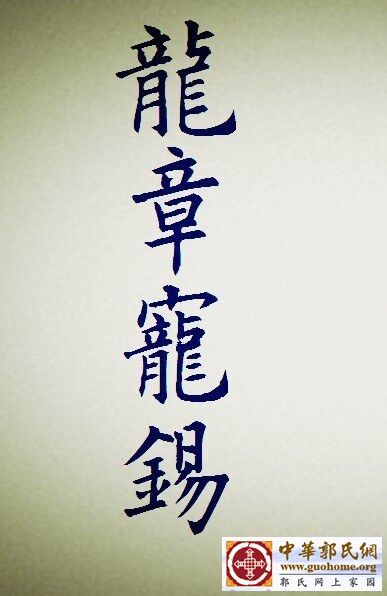 龍章寵錫
中華郭氏網
www.guohome.org
郭氏网上家园